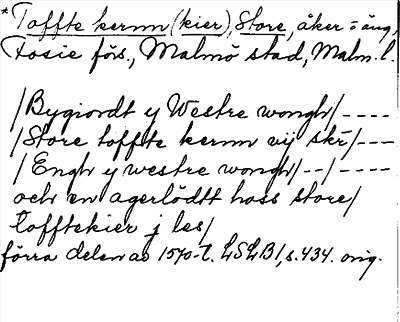 *Toffte kernn (kier), Store, åker o äng,
Fosie förs., Malmö stad, Malm. l.
/Bygiordt y Westre wongh/----
/Store töffte kernn vij skr/---
/Engh y westre wongh/--/----
och en agerlödtt hoss store/
tofftekier j les/
förra delen av 1570-t. LSLB1, s. 434. orig.